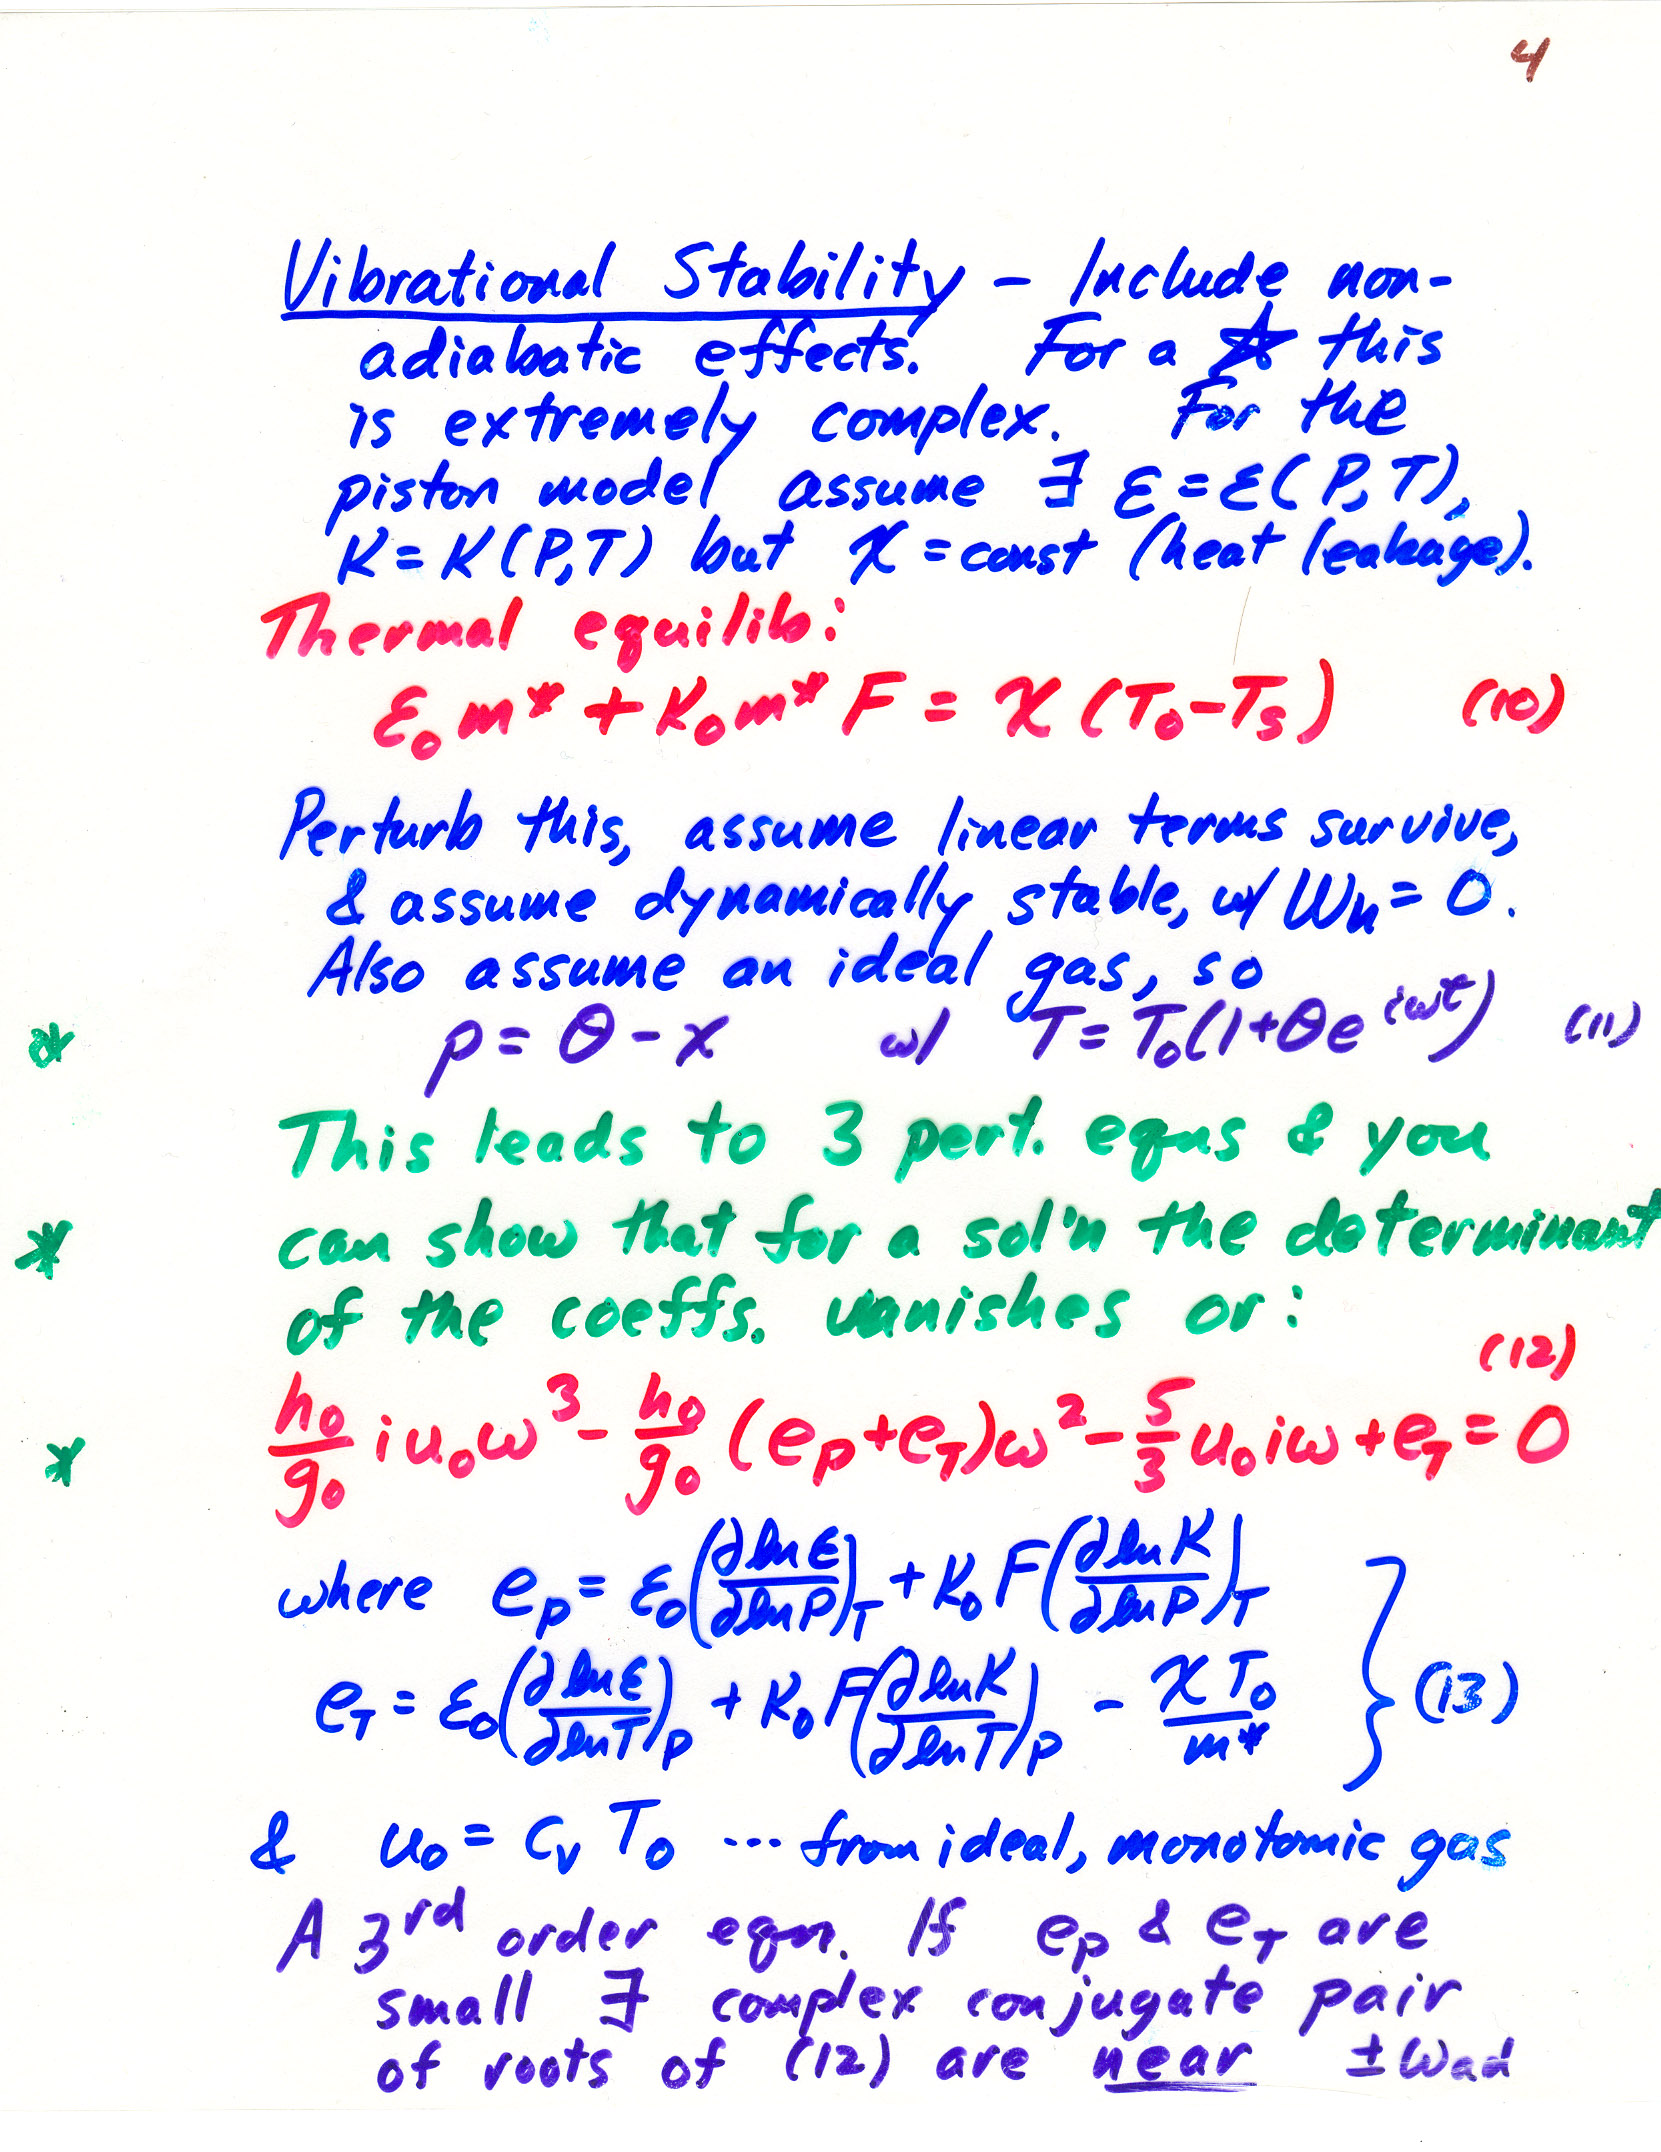 4
Vibrational Stability – Include non-
adiabatic effects. For a ☆ this
is extremely complex. For the
piston model assume ∃ ε = ε(P,T),
K = K(P,T) but χ = const (heat leakage).
Thermal equilib:
ε₀ m* + K₀ m* F = χ (T₀ - Tₛ) (10)
Perturb this, assume linear terms survive,
& assume dynamically stable, w/ Wn = 0.
Also assume an ideal gas, so
* p = θ - x w/ T = T₀(1+θe^{iωt}) (11)
This leads to 3 pert. eqns & you
* can show that for a sol'n the determinant
of the coeffs. vanishes or:
(12)
* h₀/g₀ i u₀ ω³ - h₀/g₀ (e_P + e_T) ω² - 5/3 u₀ i ω + e_T = 0
where e_P = ε₀(∂ln ε/∂ln P)_T + K₀ F(∂ln K/∂ln P)_T
e_T = ε₀(∂ln ε/∂ln T)_P + K₀ F(∂ln K/∂ln T)_P - χ T₀/m* } (13)
& u₀ = c_v T₀ ... from ideal, monotomic gas
A 3rd order eqn. If e_P & e_T are
small ∃ complex conjugate pair
of roots of (12) are near ± ω_ad